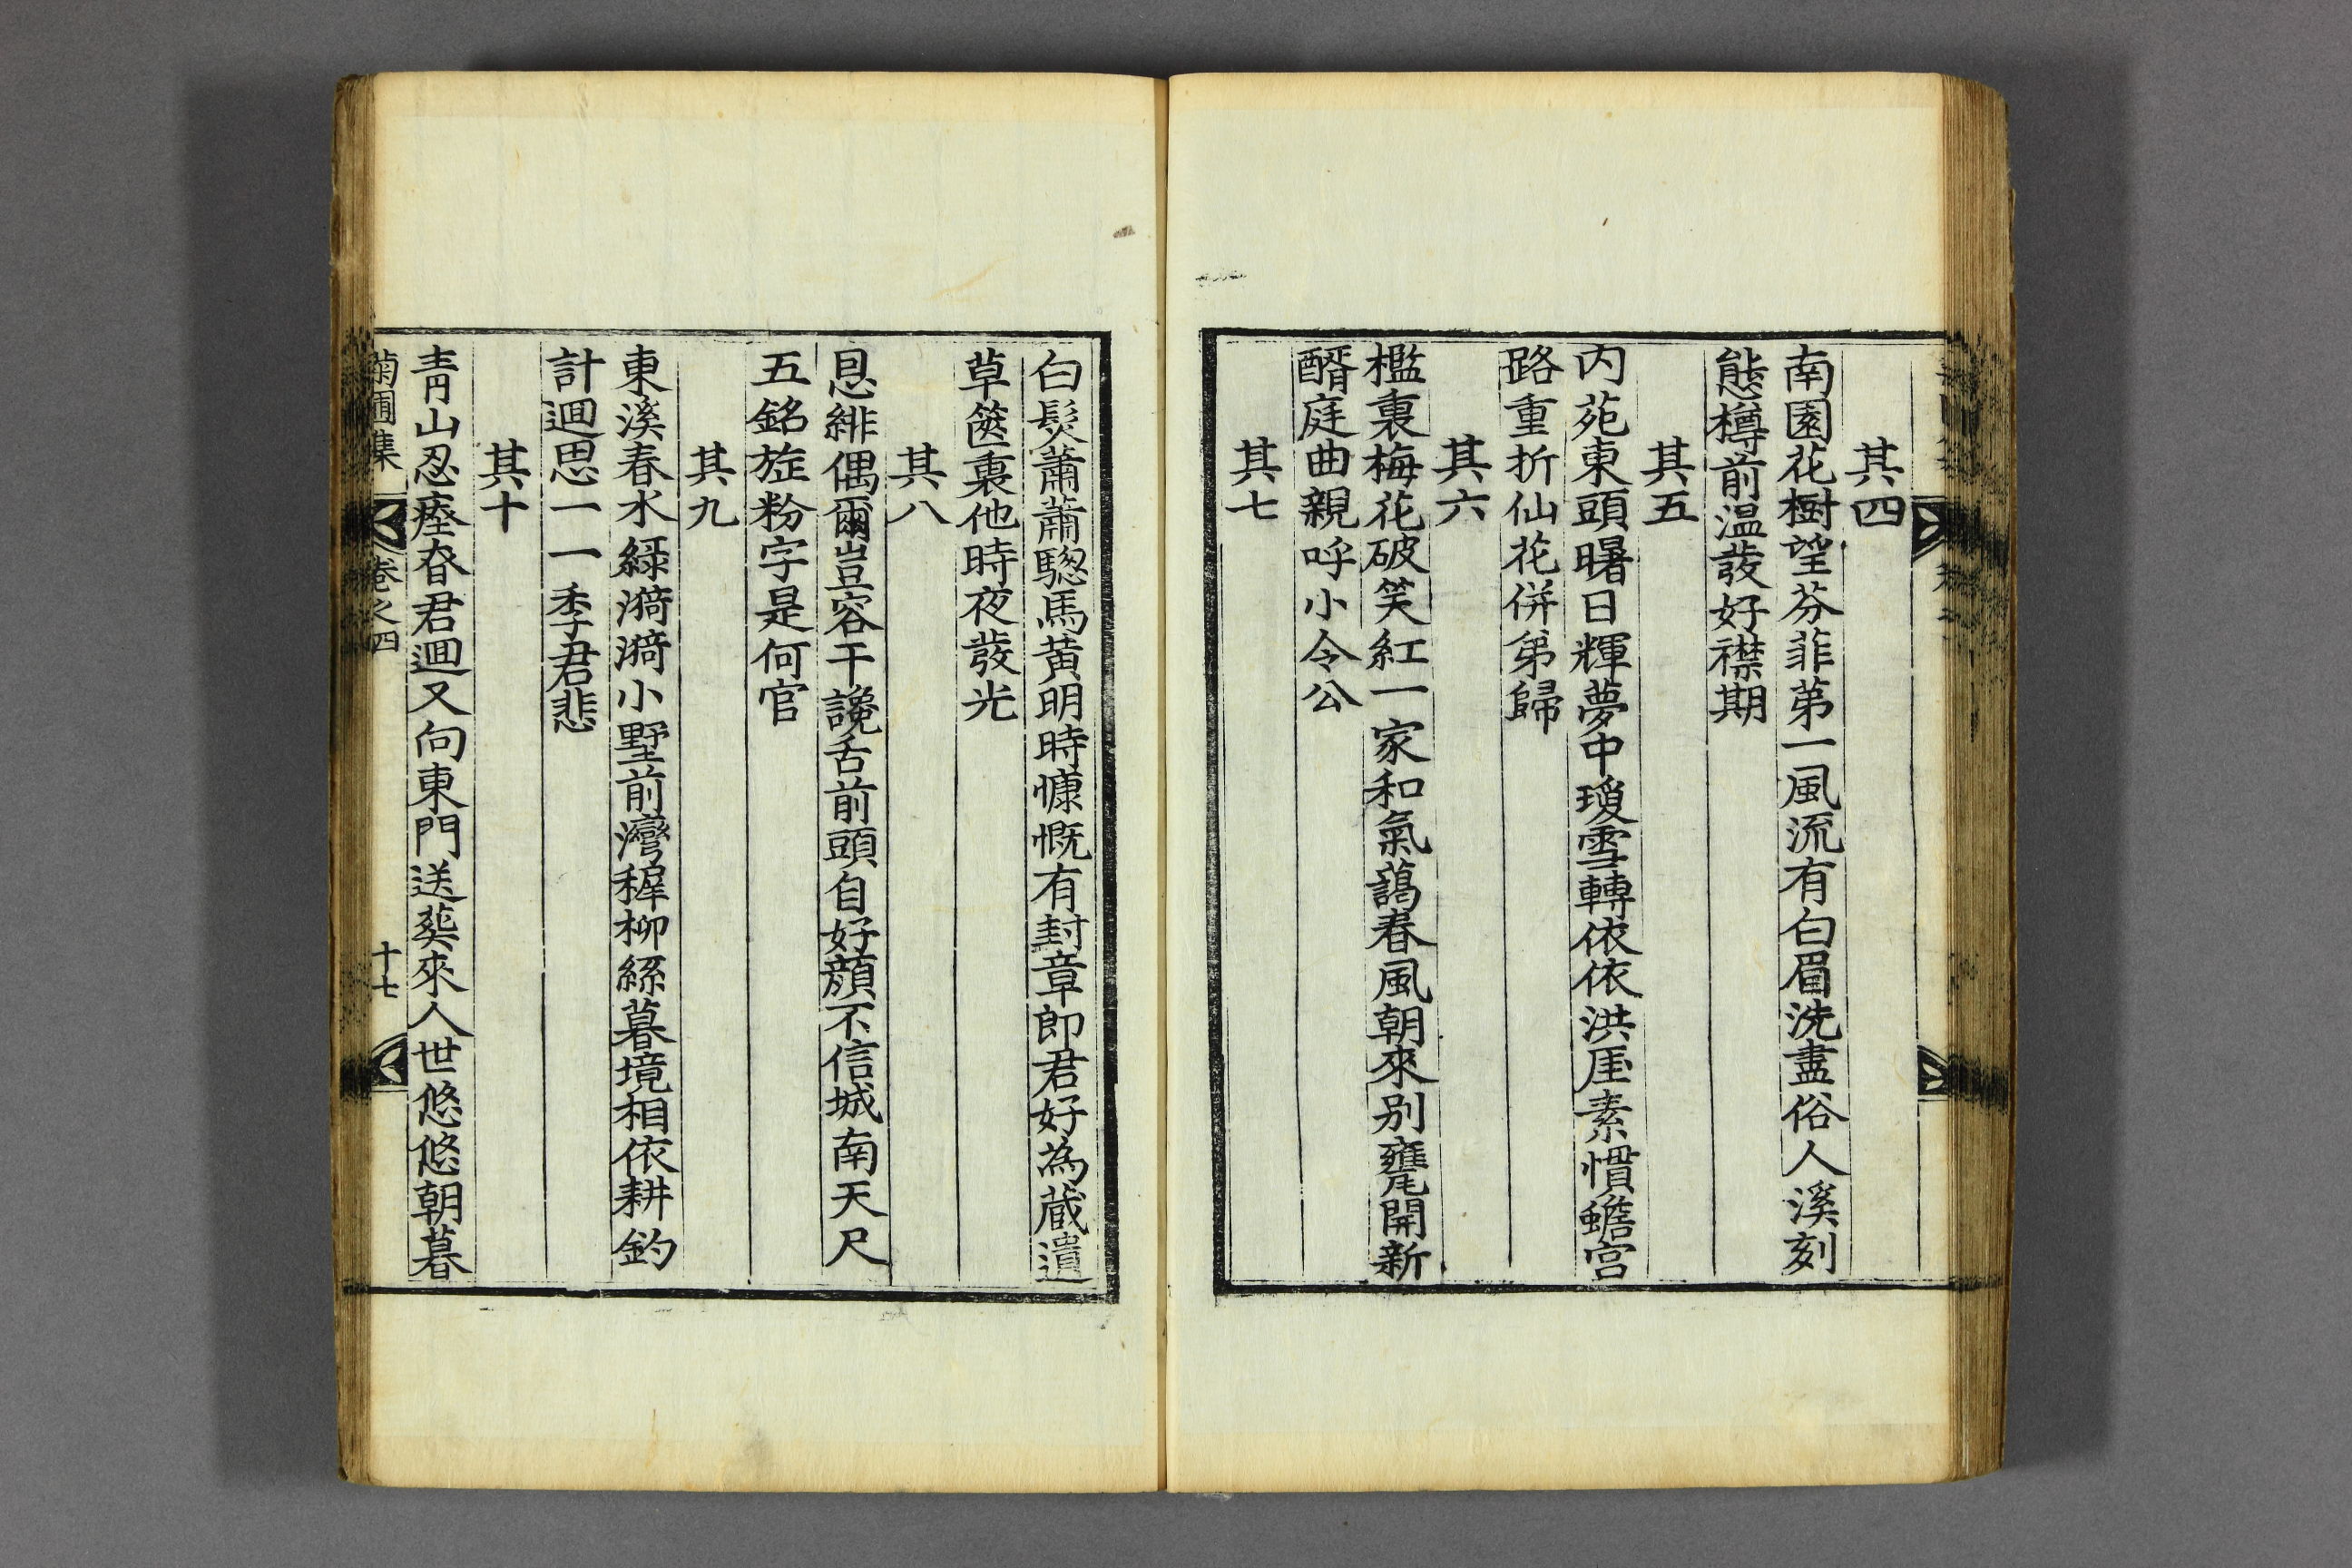 其四
南園花樹望芬菲第一風流有白眉洗盡俗人溪刻
態樽前温發好襟期
其五
内苑東頭曙日輝夢中瓊雪轉依依洪厓素慣蟾宮
路重折仙花併第歸
其六
檻裏梅花破笑紅一家和氣藹春風朝來別甕開新
醑庭曲親呼小令公
其七
白髮蕭蕭驄馬黃明時慷慨有封章郎君好為蔵遺
草篋裏他時夜發光
其八
恩緋偶爾豈容干讒舌前頭自好顔不信城南天尺
五銘旌粉字是何官
其九
東溪春水緑漪漪小墅前灣穉柳絲暮境相依耕釣
計迴思一一季君悲
其十
青山忍瘞昚君迴又向東門送葬來人世悠悠朝暮
菊圃集 卷之四 十七